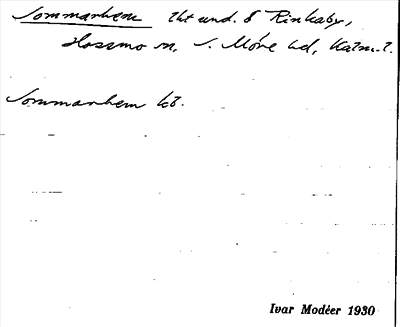 Sommarhem lht und. 8 Rinkaby,
Hossmo sn, S. Möre hd, Kalm. l.
Sommarhem kt.
Ivar Modéer 1930